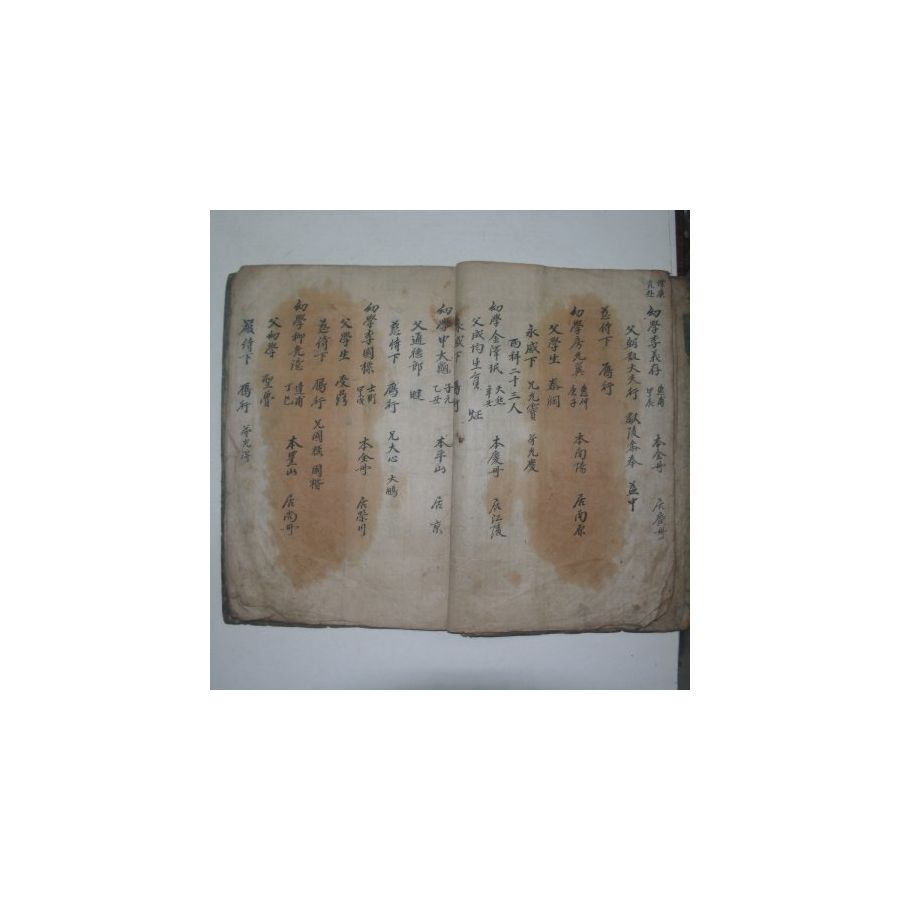 幼學李義存 甲辰 本全州 居慶州
父朝散大夫行獻陵參奉 益中
慈侍下 鴈行
幼學房允箕 庚子 本南陽 居南原
父學生 泰潤
永感下 兄允寶 弟允慶
丙科二十三人
幼學金澤珉 辛丑 本慶州 居江陵
父成均生員 炡
永感下 鴈行
幼學申大 子元 乙丑 本平山 居京
父通德郎 㬚
慈侍下 鴈行 兄大心 大鵬
幼學李國樑 士剛 甲戌 本全州 居榮川
父學生
慈侍下 鴈行 兄 國楷
幼學柳光 達甫 丁巳 本星山 居尙州
父幼學 聖魯
嚴侍下 鴈行